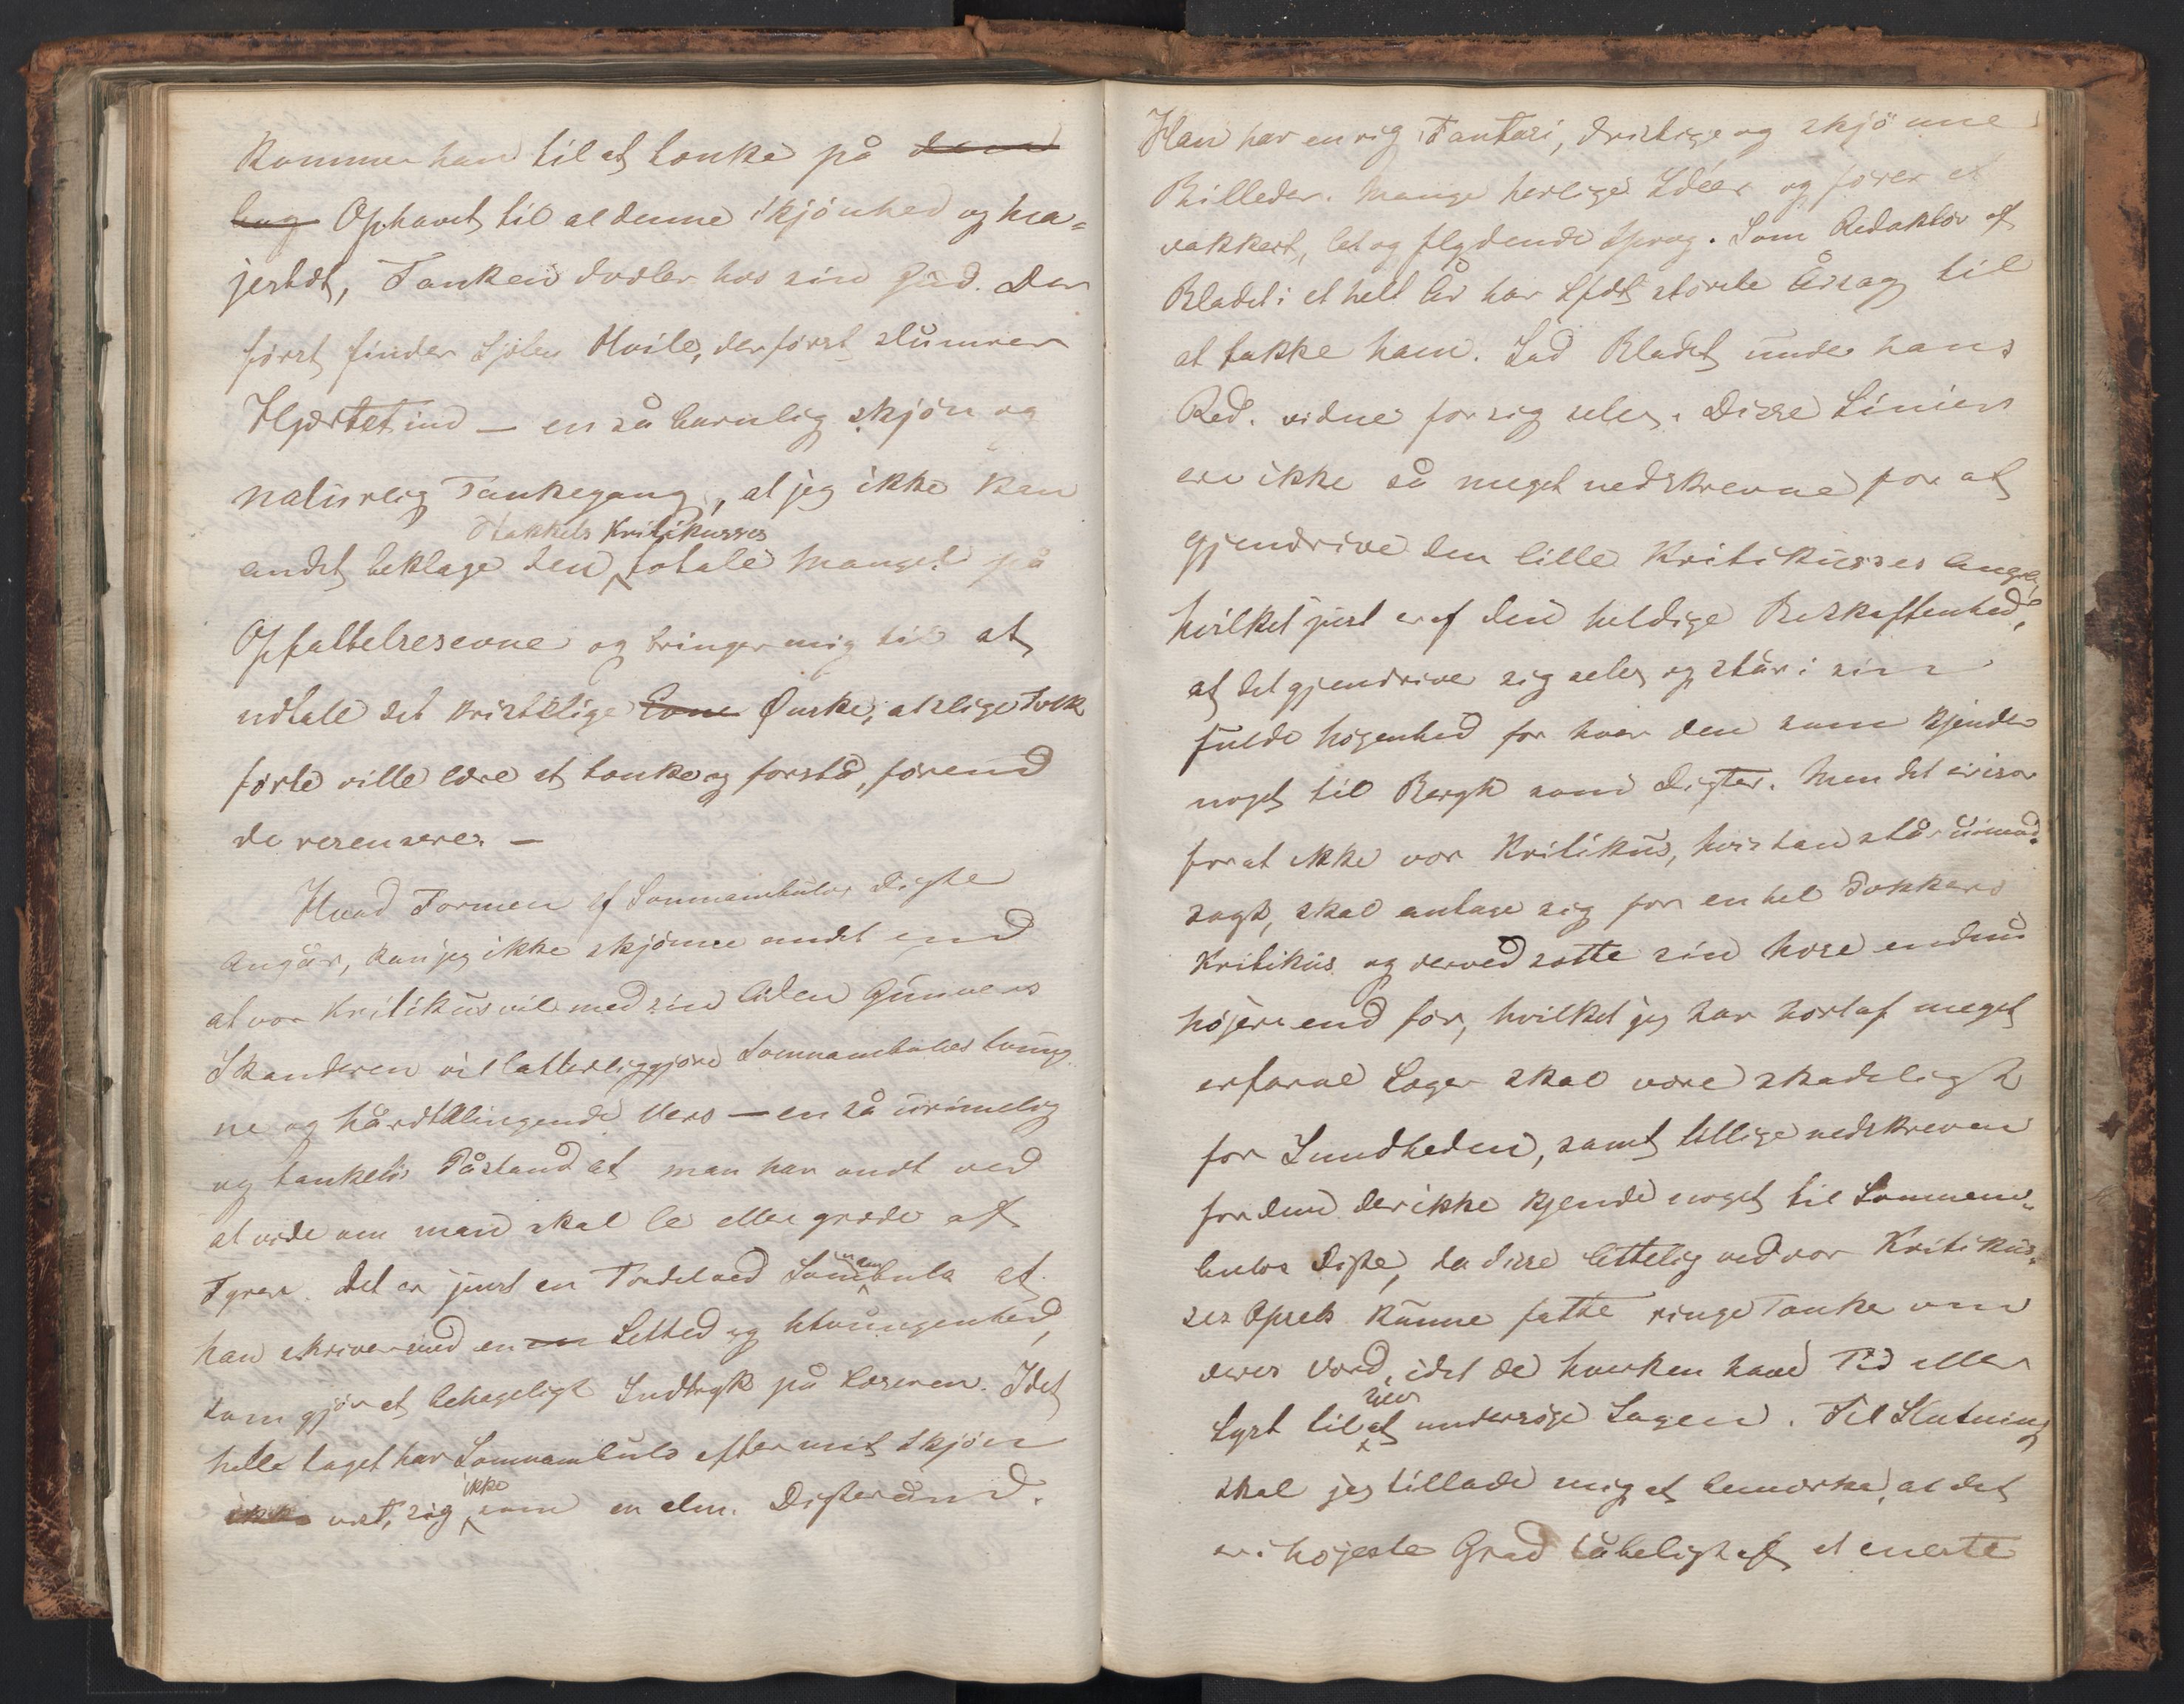 Kommer han til at tænke på dend
bag Ophavet til al denne Skjönhed og Ma-
jestæt, Tanken dvæler hos sin Gud. Der
først finder Sjælen Hvile, der først slumrer
Hjærtet ind — en så barnlig skjön og
naturlig Tankegang, at jeg ikke kan
Stakkels Kritikusses
andet beklage den totale Mangel på
Opfattelsesevne og bringer mig til at
udtale det kristelige Evne Ønske, at slige Folk
förte ville lære at tænke og forstå, förend
de resensere. —
Hvad Formen af Somnambulos Digte
angår, kan jeg ikke skjönne andet end
at vor Kritikus vil med sin Gunvers
Skanderen vil latterliggjöre Somnambulos tvung-
ne og hårdtklingende Vers — en så urimelig
og tankelös Påstand at man har ondt ved
at vide om man skal le eller græde af
Fyren. Det er just en Fordel ved Somnambulo at
han skriver med en en Lethed og Utvungenhed,
som gjör et behageligt Indtryk på Læseren. I det
hele taget har Somnambulo efter mit Skjön
ikke
ikke vist sig som en alm. Digterånd.
Han har en rig Fantasi, dristige og skjönne
Billeder. Mange herlige Idéer og förer et
vakkert, let og flydende Sprog. Som Redaktör af
Bladet i et helt År har Sfdt störste Årsag til
at takke ham. Lad Bladet under hans
Red. vidne for sig selv. Disse Linier
ere ikke så meget nedskrevne for at
gjendrive den lille Kritikusses Angreb,
hvilket just er af den heldige Beskaffenhed,
at det gjendriver sig selv og står i sin
fulde Nögenhed for hver den som kjender
noget til Bergh som Digter. Men det er især
for at ikke vor Kritikus, hvis han står uimod-
sagt, skal antage sig for en hel Pokkers
Kritikus og derved sætte sin Næse endnu
höjere end för, hvilket jeg har hört af meget
erfarne Læger skal være skadeligt
for Sundheden, samt tillige nedskreven
for dem der ikke kjende noget til Somnam-
bulos Digte, da disse lettelig ved vor Kritikus-
ses Opsets kunne fatte ringe Tanke om
deres Værd, idet de hverken have Tid eller
Lyst til at undersöge Sagen. Til Slutning
skal jeg tillade mig at bemærke, at det
er i höjeste Grad tåbeligt af et eneste